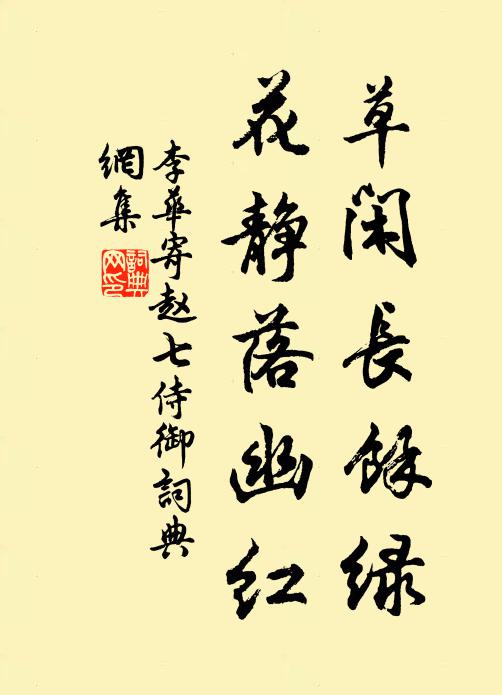 草闲长馀绿
花静落幽红
李华寄赵七侍御词典
網集
詞典网印